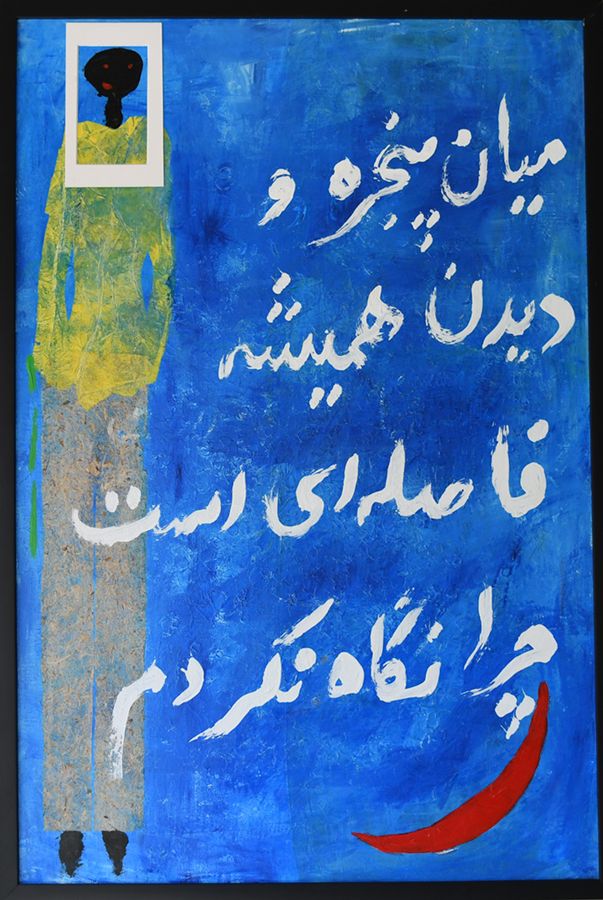 میان پنجره و
دیدن همیشه
فاصله ای است
چرا نگاه نکردم